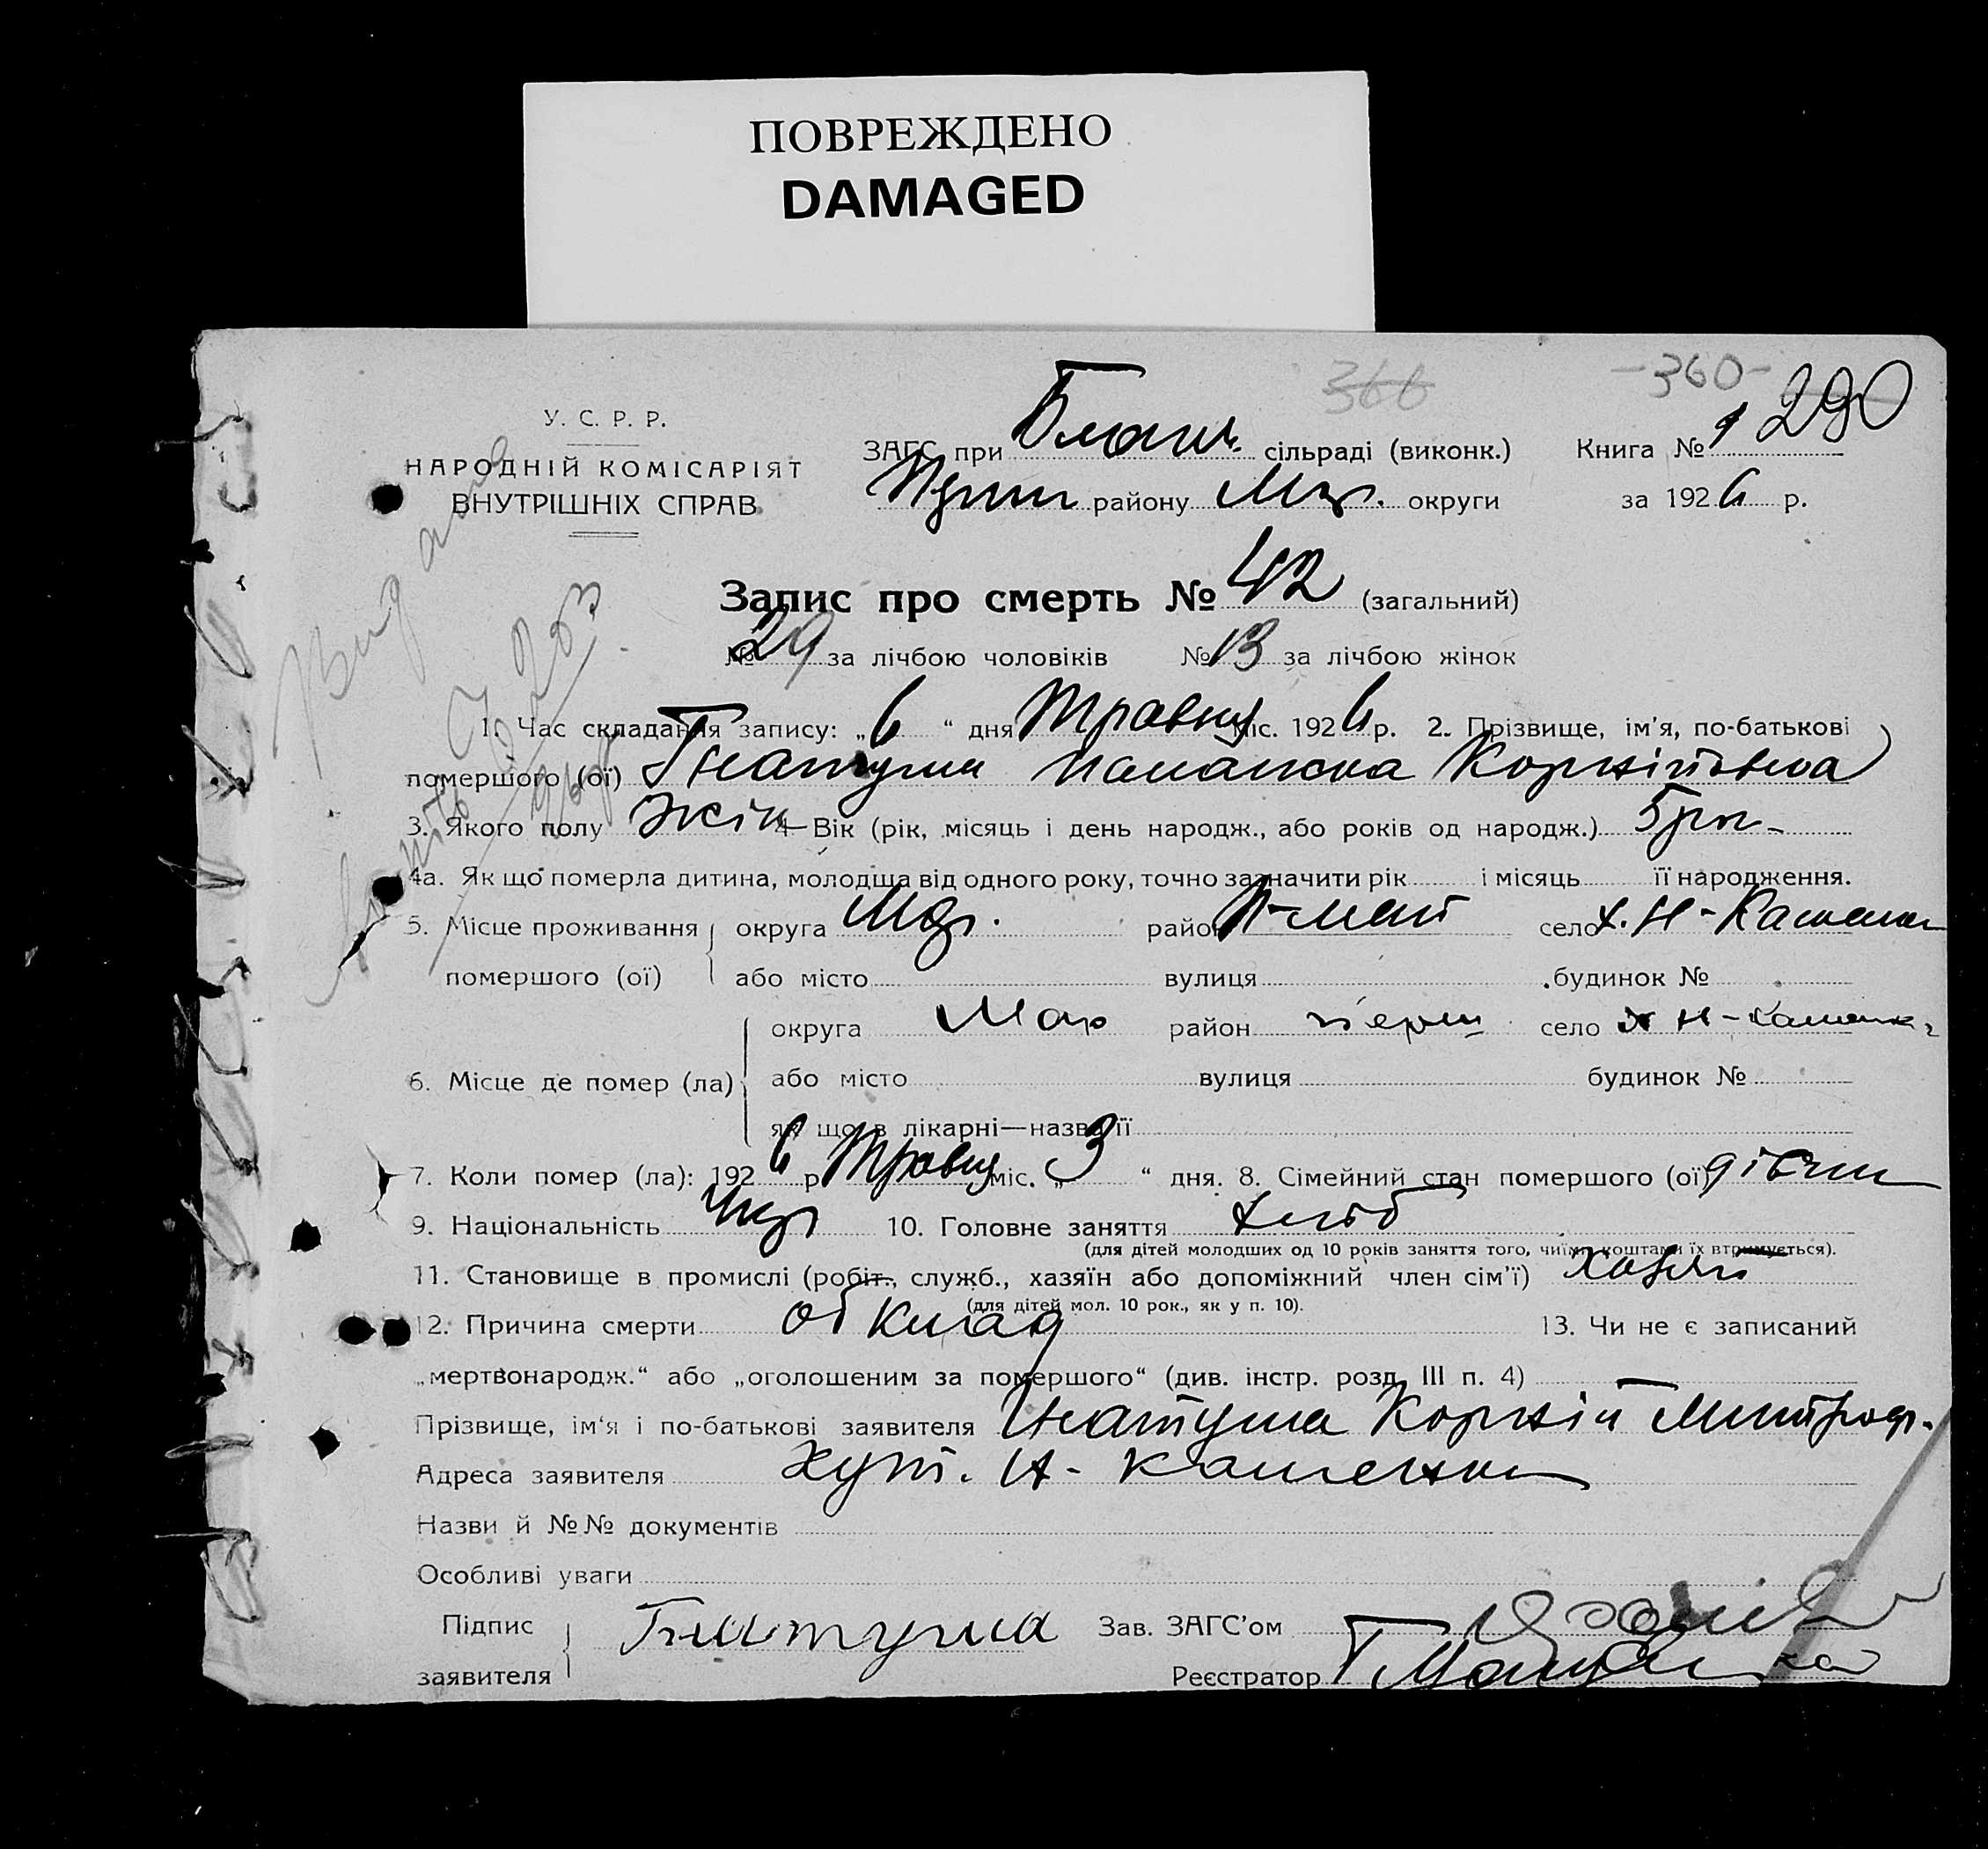 ПОВРЕЖДЕНО
DAMAGED
366
-360-
290
У. С. Р. Р.
НАРОДНІЙ КОМІСАРІЯТ
ВНУТРІШНІХ СПРАВ
ЗАГС при сільраді (виконк.) Книга № 1
району округи за 1926 р.
Запис про смерть № 42 (загальний)
№ 29 за лічбою чоловіків № 13 за лічбою жінок
1. Час складання запису: „6“ дня Травня міс. 1926 р. 2. Прізвище, ім'я, по-батькові
помершого (ої) Гнатуша Коржіївна
3. Якого полу жін 4. Вік (рік, місяць і день народж., або років од народж.) 5 рок
4а. Як що померла дитина, молодша від одного року, точно зазначити рік і місяць її народження.
5. Місце проживання помершого (ої) округа район П-май село х. Н-Каменка
або місто вулиця будинок №
6. Місце де помер (ла) округа район Перш село х Н-Каменка
або місто вулиця будинок №
як що в лікарні—назва її
7. Коли помер (ла): 1926 р Травня міс. „3“ дня. 8. Сімейний стан помершого (ої) дівчин
9. Національність Укр 10. Головне заняття хліб
(для дітей молодших од 10 років заняття того, чиїми коштами їх втримується).
11. Становище в промислі (робіт., служб., хазяїн або допоміжний член сім'ї) хазяй
(для дітей мол. 10 рок., як у п. 10).
12. Причина смерти обклад 13. Чи не є записаний
„мертвонародж.“ або „оголошеним за помершого“ (див. інстр. розд. III п. 4)
Прізвище, ім'я і по-батькові заявителя Гнатуша Коржій Митроф.
Адреса заявителя хут. Н-Каменка
Назви й №№ документів
Особливі уваги
Підпис заявителя Гнатуша Зав. ЗАГС'ом
Реєстратор